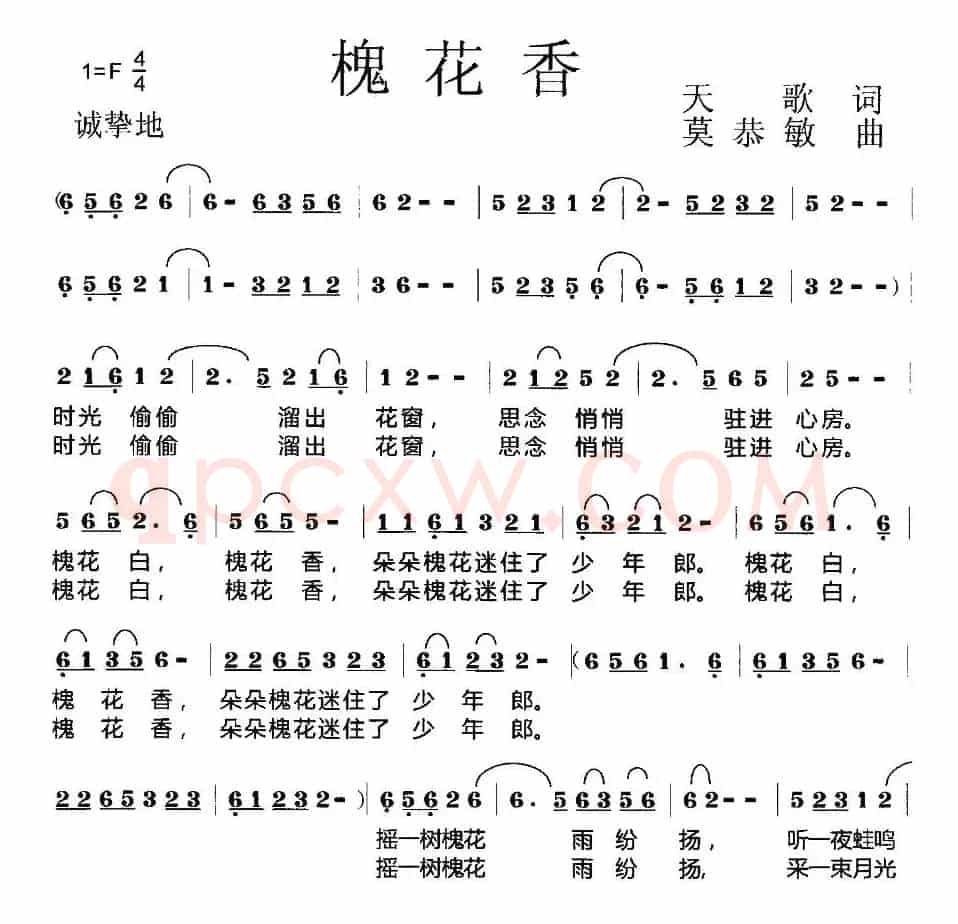 槐花香
1=F 4/4
天歌词
诚挚地
莫恭敏曲
(6 5 6 2 6 | 6 - 6 3 5 6 | 6 2 - - | 5 2 3 1 2 | 2 - 5 2 3 2 | 5 2 - - |
6 5 6 2 1 | 1 - 3 2 1 2 | 3 6 - - | 5 2 3 5 6 | 6 - 5 6 1 2 | 3 2 - - ) |
2 1 6 1 2 | 2. 5 2 1 6 | 1 2 - - | 2 1 2 5 2 | 2. 5 6 5 | 2 5 - - |
时光 偷偷 溜出 花窗， 思念 悄悄 驻进 心房。
时光 偷偷 溜出 花窗， 思念 悄悄 驻进 心房。
qpcxw.com
5 6 5 2. 6 | 5 6 5 5 - | 1 1 6 1 3 2 1 | 6 3 2 1 2 - | 6 5 6 1. 6 |
槐花 白， 槐花 香， 朵朵槐花迷住了 少 年 郎。 槐花 白，
槐花 白， 槐花 香， 朵朵槐花迷住了 少 年 郎。 槐花 白，
6 1 3 5 6 - | 2 2 6 5 3 2 3 | 6 1 2 3 2 - | (6 5 6 1. 6 | 6 1 3 5 6 - |
槐 花 香， 朵朵槐花迷住了 少 年 郎。
槐 花 香， 朵朵槐花迷住了 少 年 郎。
2 2 6 5 3 2 3 | 6 1 2 3 2 - ) | 6 5 6 2 6 | 6. 5 6 3 5 6 | 6 2 - - | 5 2 3 1 2 |
摇一树槐花 雨 纷 扬， 听一夜蛙鸣
摇一树槐花 雨 纷 扬， 采一束月光